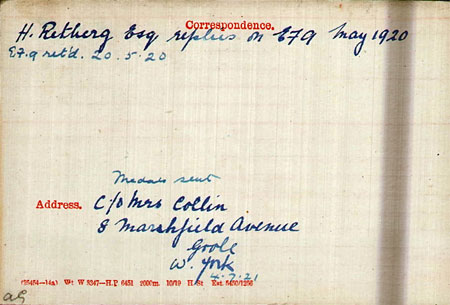 Correspondence.
H. Retberg Esq. replies on EF9 May 1920
EF.9 retd. 20.5.20
Medals sent
Address. C/o Mrs Collin
8 Marshfield Avenue
Goole
W. York
4.7.21
(25454—14a) Wt W 5347—H.P 6451 2000m. 10/19 H. St